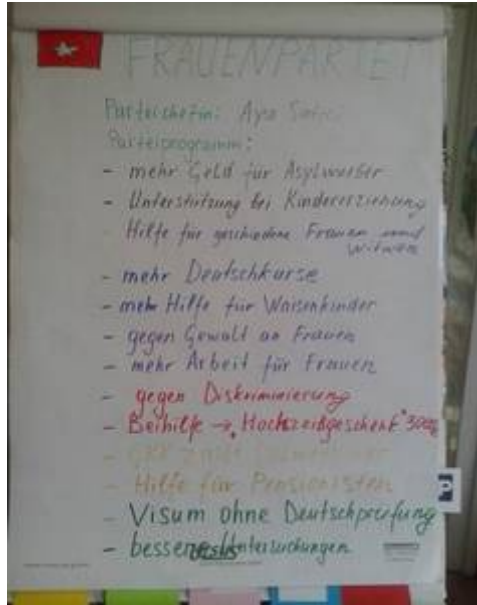 FRAUENPARTEI
Parteichefin: Ayse
Parteiprogramm:
- mehr Geld für Asylwerber
- Unterstützung bei Kindererziehung
Hilfe für geschiedene Frauen und
Witwen
- mehr Deutschkurse
- mehr Hilfe für Waisenkinder
- gegen Gewalt an Frauen
- mehr Arbeit für Frauen
- gegen Diskriminierung
- Beihilfe → Hochzeitsgeschenk
- GKK
- Hilfe für Pensionisten
- Visum ohne Deutschprüfung
- bessere Untersuchungen